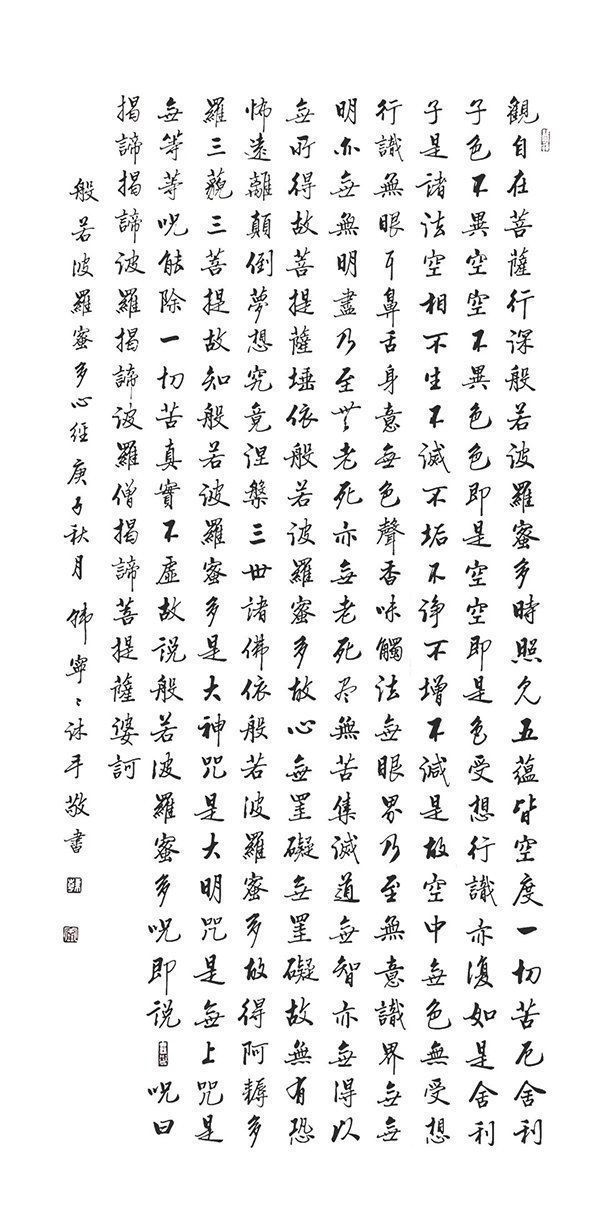 觀自在菩薩行深般若波羅蜜多時照見五蘊皆空度一切苦厄舍利
子色不異空空不異色色即是空空即是色受想行識亦復如是舍利
子是諸法空相不生不滅不垢不淨不增不減是故空中無色無受想
行識無眼耳鼻舌身意無色聲香味觸法無眼界乃至無意識界無無
明亦無無明盡乃至無老死亦無老死尽無苦集滅道無智亦無得以
無所得故菩提薩埵依般若波羅蜜多故心無罣礙無罣礙故無有恐
怖遠離顛倒夢想究竟涅槃三世諸佛依般若波羅蜜多故得阿耨多
羅三藐三菩提故知般若波羅蜜多是大神咒是大明咒是無上咒是
無等等呪能除一切苦真實不虛故說般若波羅蜜多呪即說呪曰
揭諦揭諦波羅揭諦波羅僧揭諦菩提薩婆訶
般若波羅蜜多心經庚子秋月 韓寧〻沐手敬書